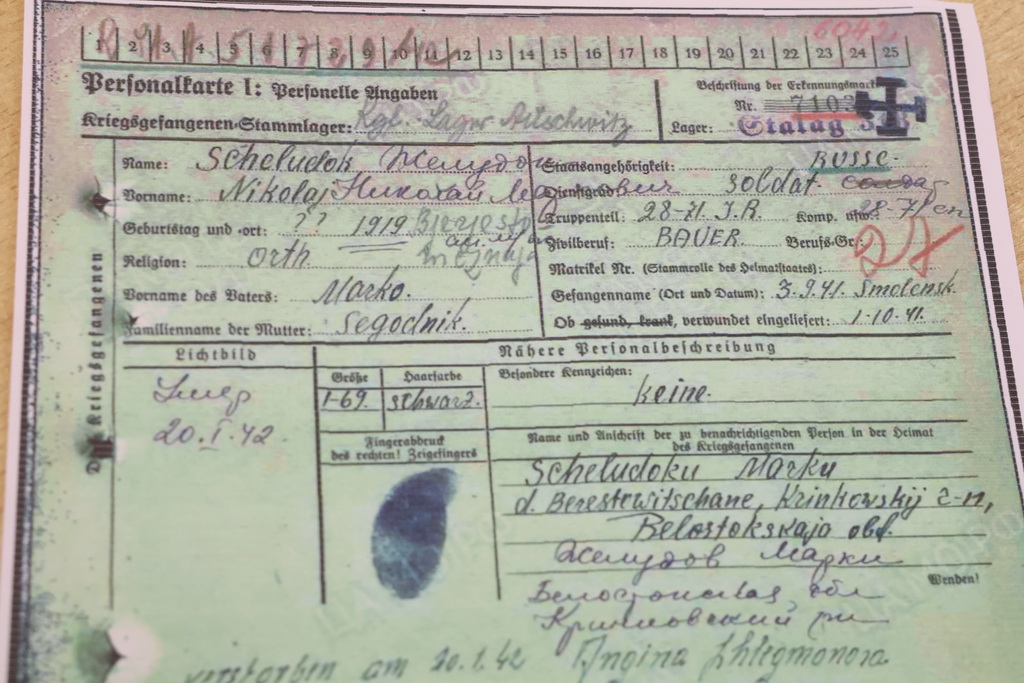 1 2 3 4 5 6 7 8 9 10 11 12 13 14 15 16 17 18 19 20 21 22 23 24 25
Personalkarte I: Personelle Angaben
Kriegsgefangenen-Stammlager: Kgf. Lager Auschwitz
Beschriftung der Erkennungsmarke
Nr. 7102
Lager: Stalag
Des Kriegsgefangenen
Name: Scheludok Желудок
Vorname: Nikolaj Николай
Geburtstag und -ort: ?? 1919
Religion: Orth.
Vorname des Vaters: Marko.
Familienname der Mutter: Segodnik.
Staatsangehörigkeit: RUSSE.
Dienstgrad: Soldat
Truppenteil: 28-71. I.R. Komp. usw.:
Zivilberuf: BAUER. Berufs-Gr.:
Matrikel Nr. (Stammrolle des Heimatstaates):
Gefangennahme (Ort und Datum): 3.9.41. Smolensk.
Ob gesund, krank, verwundet eingeliefert: 1-10.41.
Lichtbild
Умер
20.I.42.
Nähere Personalbeschreibung
Größe Haarfarbe
1-69. schwarz.
Fingerabdruck
des rechten! Zeigefingers
Besondere Kennzeichen:
keine.
Name und Anschrift der zu benachrichtigenden Person in der Heimat
des Kriegsgefangenen
Scheludoku Marku
d. Berestewitschane, Krinkowskij r-n,
Belostokskaja obl.
Желудов Марки
Белостокская обл
Кринковский рн
Wenden!
verstorben am 20.1.42 Angina phlegmonosa